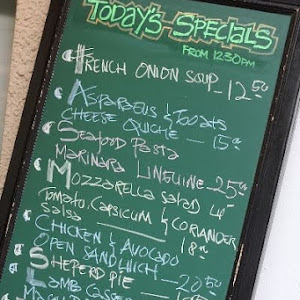 TODAY'S SPECIALS
FROM 1230PM
FRENCH ONION SOUP - 12.50
ASPARAGUS & TOMATO
CHEESE QUICHE - 15
SEAFOOD PASTA
MARINARA LINGUINE - 25
MOZZARELLA SALAD
TOMATO, CAPSICUM & CORIANDER
SALSA 18
CHICKEN & AVOCADO
OPEN SANDWICH - 20.50
SHEPERD PIE -
LAMB